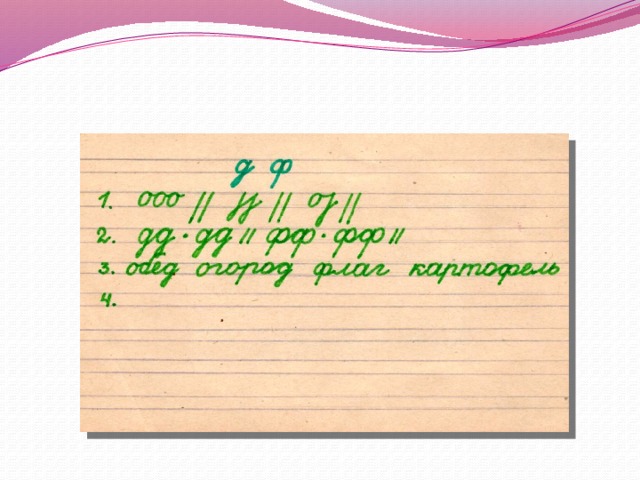 д ф
1. ооо || јј || oј ||
2. дд · дд || фф · фф ||
3. обед огород флаг картофель
4.